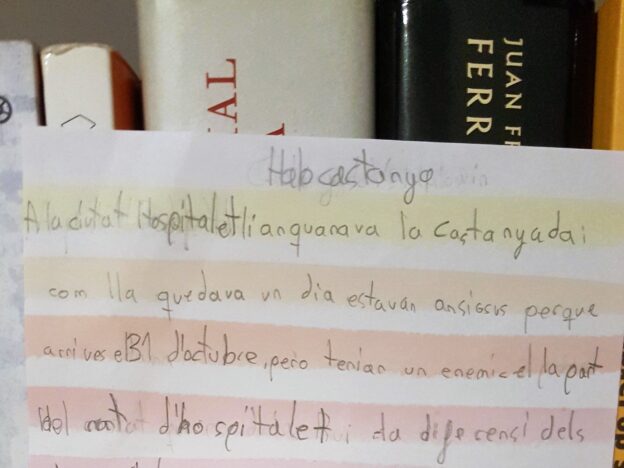 TAL
JUAN FE
FERR
Halocastanya
A la ciutat Hospitaletlianquanava la Castanyada i
com lla quedava un dia estavan ansiosus perque
arrives el31 d'octubre, pero tenian un enemic el la part
del d'hospitalet i da diferensi dels